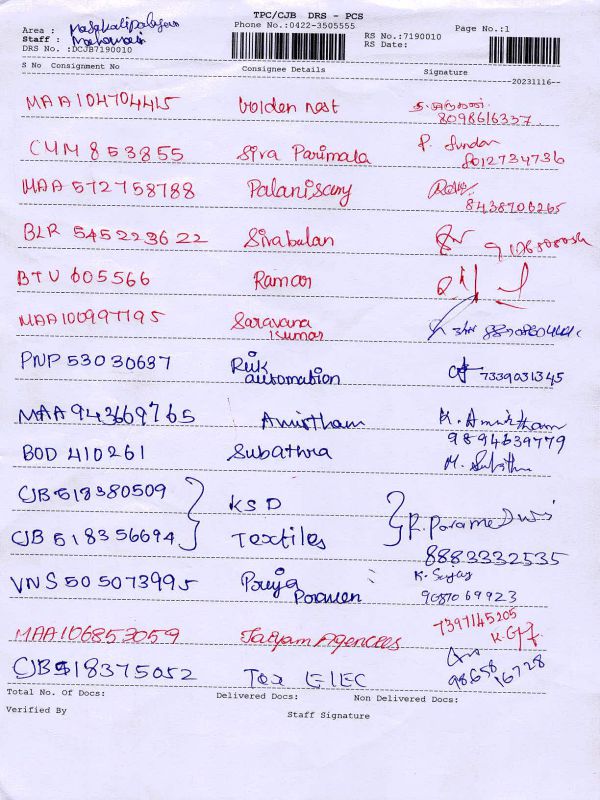 TPC/CJB DRS - PCS
Phone No.:0422-3505555
Page No.:1
Area :
Staff :
DRS No. :DCJB7190010
RS No.:7190010
RS Date:
S No Consignment No Consignee Details Signature
20231116
MAA104704415 Golden nest
8098616337
CUM 853855 Siva Parimala P. Sundar
8012734736
MAA 572758788 Palanisamy
8438706265
BLR 545223622 Sivabalan
BTU 605566 Ramar
MAA100997195 Saravana
Kumar
PNP 53030637 Rik
automation 7339031345
MAA943669765 Amirtham K. Amirtham
9894639779
BOD 410261 Subathra M. Subathra
CJB 518380509 KSD
CJB 518356694 Textiles
8883332535
VNS 505073995 Pooja
9087069923
7397145205
MAA106853059 Satyam Agencees
CJB518375052 Tex ELEC 98658 16728
Total No. Of Docs: Delivered Docs: Non Delivered Docs:
Verified By Staff Signature